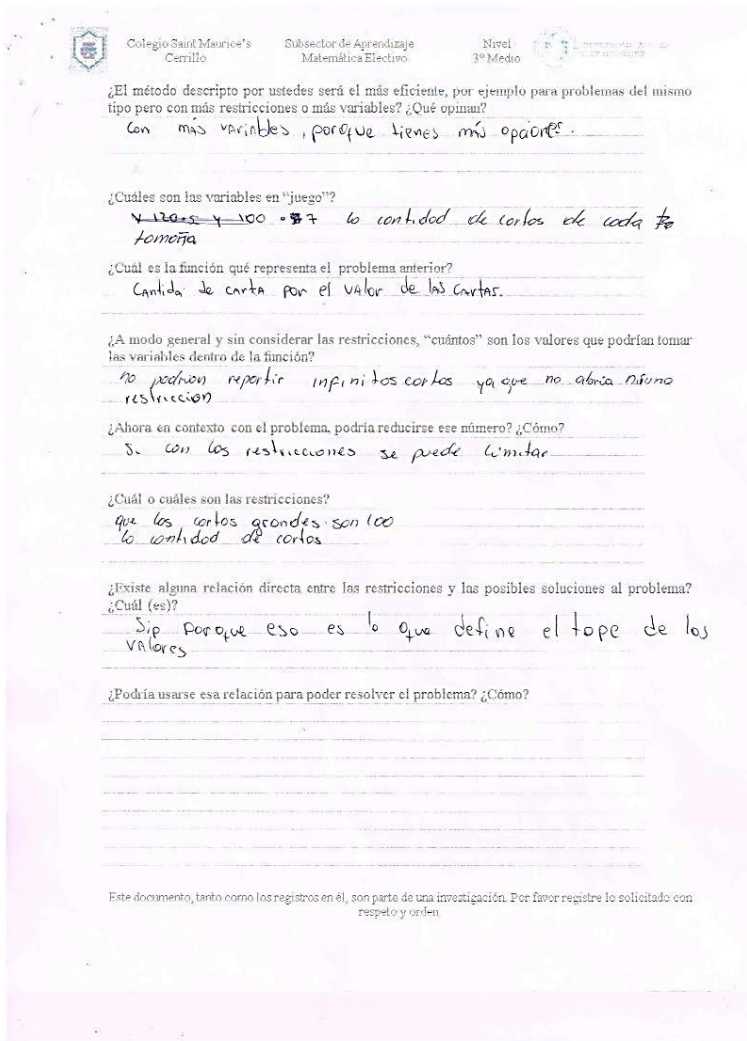 Colegio Saint Maurice's
Cerrillo
Subsector de Aprendizaje
Matemática Electivo
Nivel
3º Medio
¿El método descripto por ustedes será el más eficiente, por ejemplo para problemas del mismo
tipo pero con más restricciones o más variables? ¿Qué opinan?
Con más variables, porque tienes más opciones.
¿Cuáles son las variables en "juego"?
y 100 · 7 la cantidad de cartas de cada
tomaña
¿Cuál es la función qué representa el problema anterior?
Cantida de carta por el valor de las cartas.
¿A modo general y sin considerar las restricciones, "cuántos" son los valores que podrían tomar
las variables dentro de la función?
no podrion repartir infinitos cartas ya que no abria niguna
restriccion
¿Ahora en contexto con el problema, podría reducirse ese número? ¿Cómo?
Si con las restricciones se puede limitar
¿Cuál o cuáles son las restricciones?
que las cartas grandes son 100
la cantidad de cartas
¿Existe alguna relación directa entre las restricciones y las posibles soluciones al problema?
¿Cuál (es)?
Sip porque eso es lo que define el tope de los
valores
¿Podría usarse esa relación para poder resolver el problema? ¿Cómo?
Este documento, tanto como los registros en él, son parte de una investigación. Por favor registre lo solicitado con
respeto y orden.